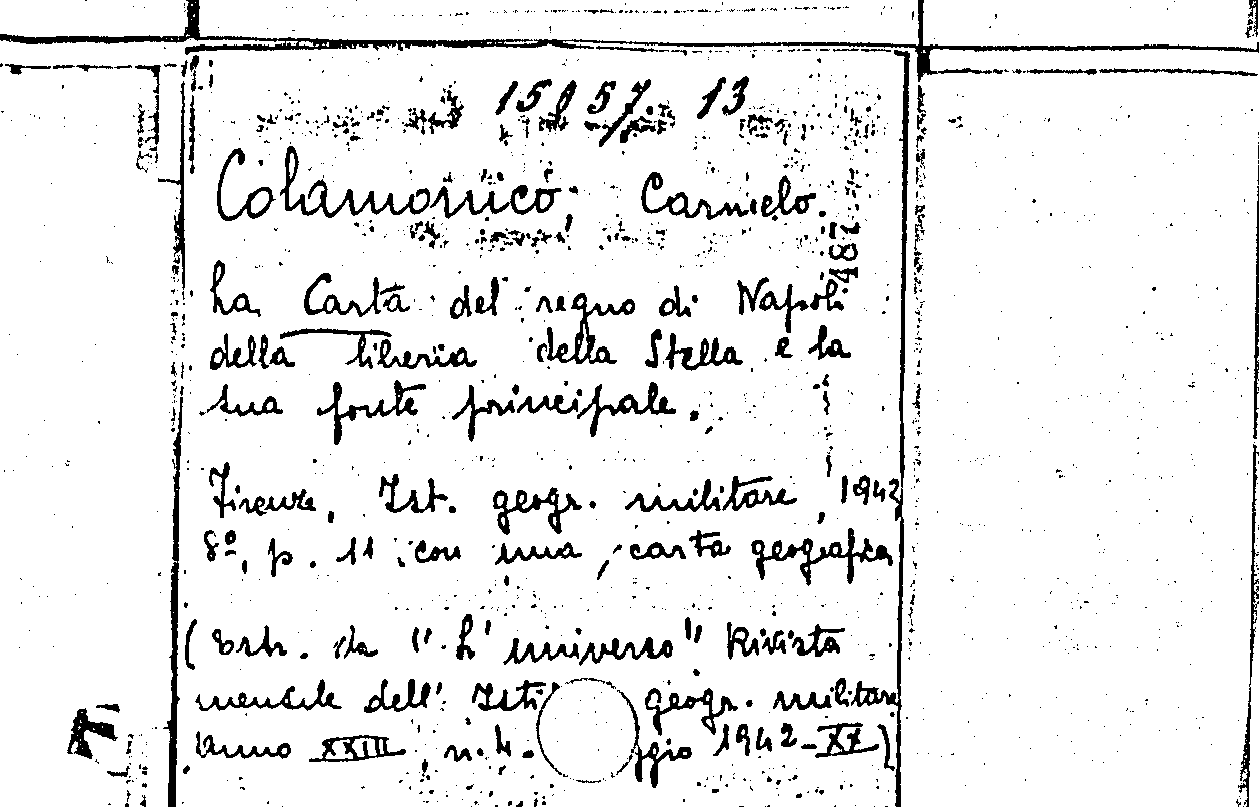 13
Colamonico, Carmelo.
487
La Carta del regno di Napoli
della libreria della Stella e la
sua fonte principale.
Firenze, Ist. geogr. militare, 1942
8º, p. 11 con una carta geografica
(Estr. da "L'universo" Rivista
mensile dell' Isti geogr. militare
anno XXIII, n. 4. ggio 1942-XX)